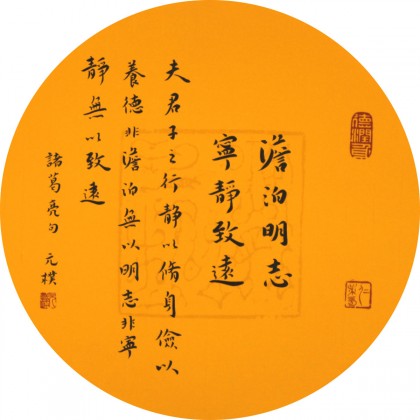 澹泊明志
寧靜致遠
夫君子之行靜以脩身儉以
養德非澹泊無以明志非寧
靜無以致遠
諸葛亮句 元樸